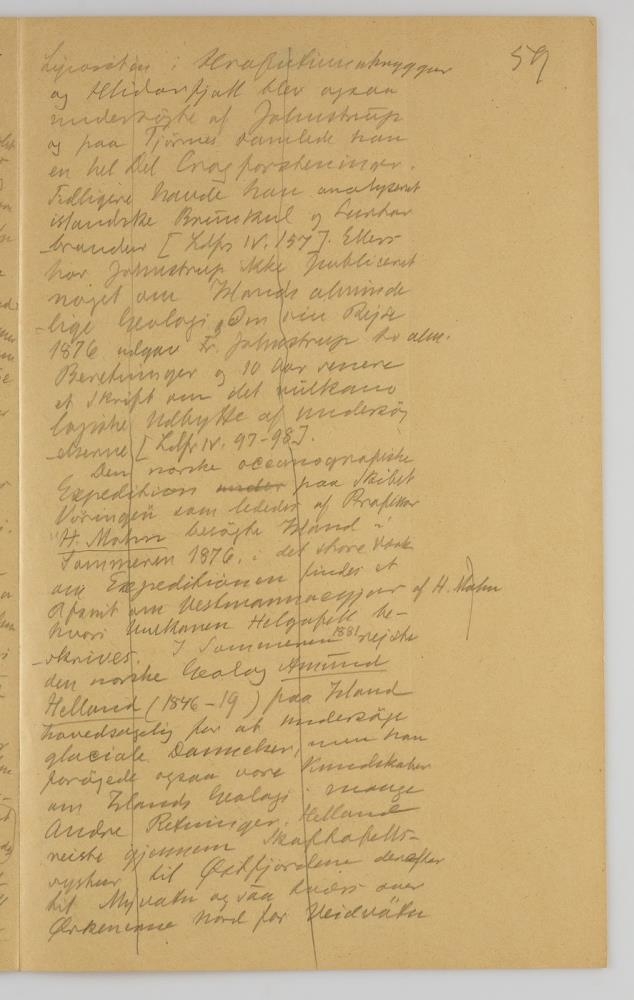 59
Liparsten i Hrafntinnuhryggur
og Hlidarfjall blev ogsaa
undersögte af Johnstrup
og paa Tjörnes samlede han
en hel Del Cragforsteninger.
Tidligere havde han analyseret
islandske Brunkul og Surtar
brandur [Ldfr IV. 157]. Ellers
har Johnstrup ikke publiceret
noget om Islands alminde
lige Geologi. Om sin Rejse
1876 udgav Fr. Johnstrup to alm.
Beretninger og 10 Aar senere
et Skrift om det vulkano
logiske Udbytte af undersög
elserne [Ldfr IV. 97-98].
Den norske oceanografiske
Expedition under paa Skibet
Vöringen som lededes af Professor
H. Mohn besögte Island i
Sommeren 1876, i det store Værk
om Expeditionen findes et
Afsnit om Vestmannaeyjar af H. Mohn
hvori Vulkanen Helgafell be-
skrives. I Sommeren 1881 rejste
den norske Geolog Amund
Helland (1846-19 ) paa Island
hovedsagelig for at undersöge
glaciale Dannelser, men han
forögede ogsaa vore Kundskaber
om Islands Geologi i mange
Andre Retninger. Helland
reiste gjennem Skaftafells-
syslur til Östfjordene derefter
til Myvatn og saa tværs over
Örkenerne Nord for